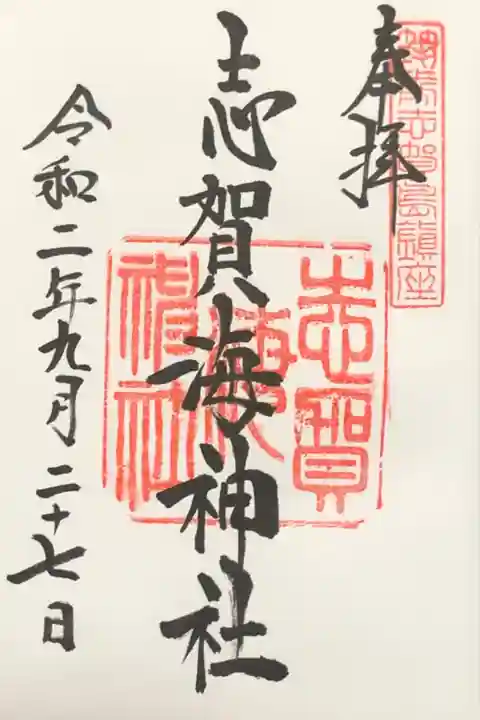 筑前志賀島鎮座
奉拝
志賀海神社
志賀
海
神社
令和二年九月二十七日